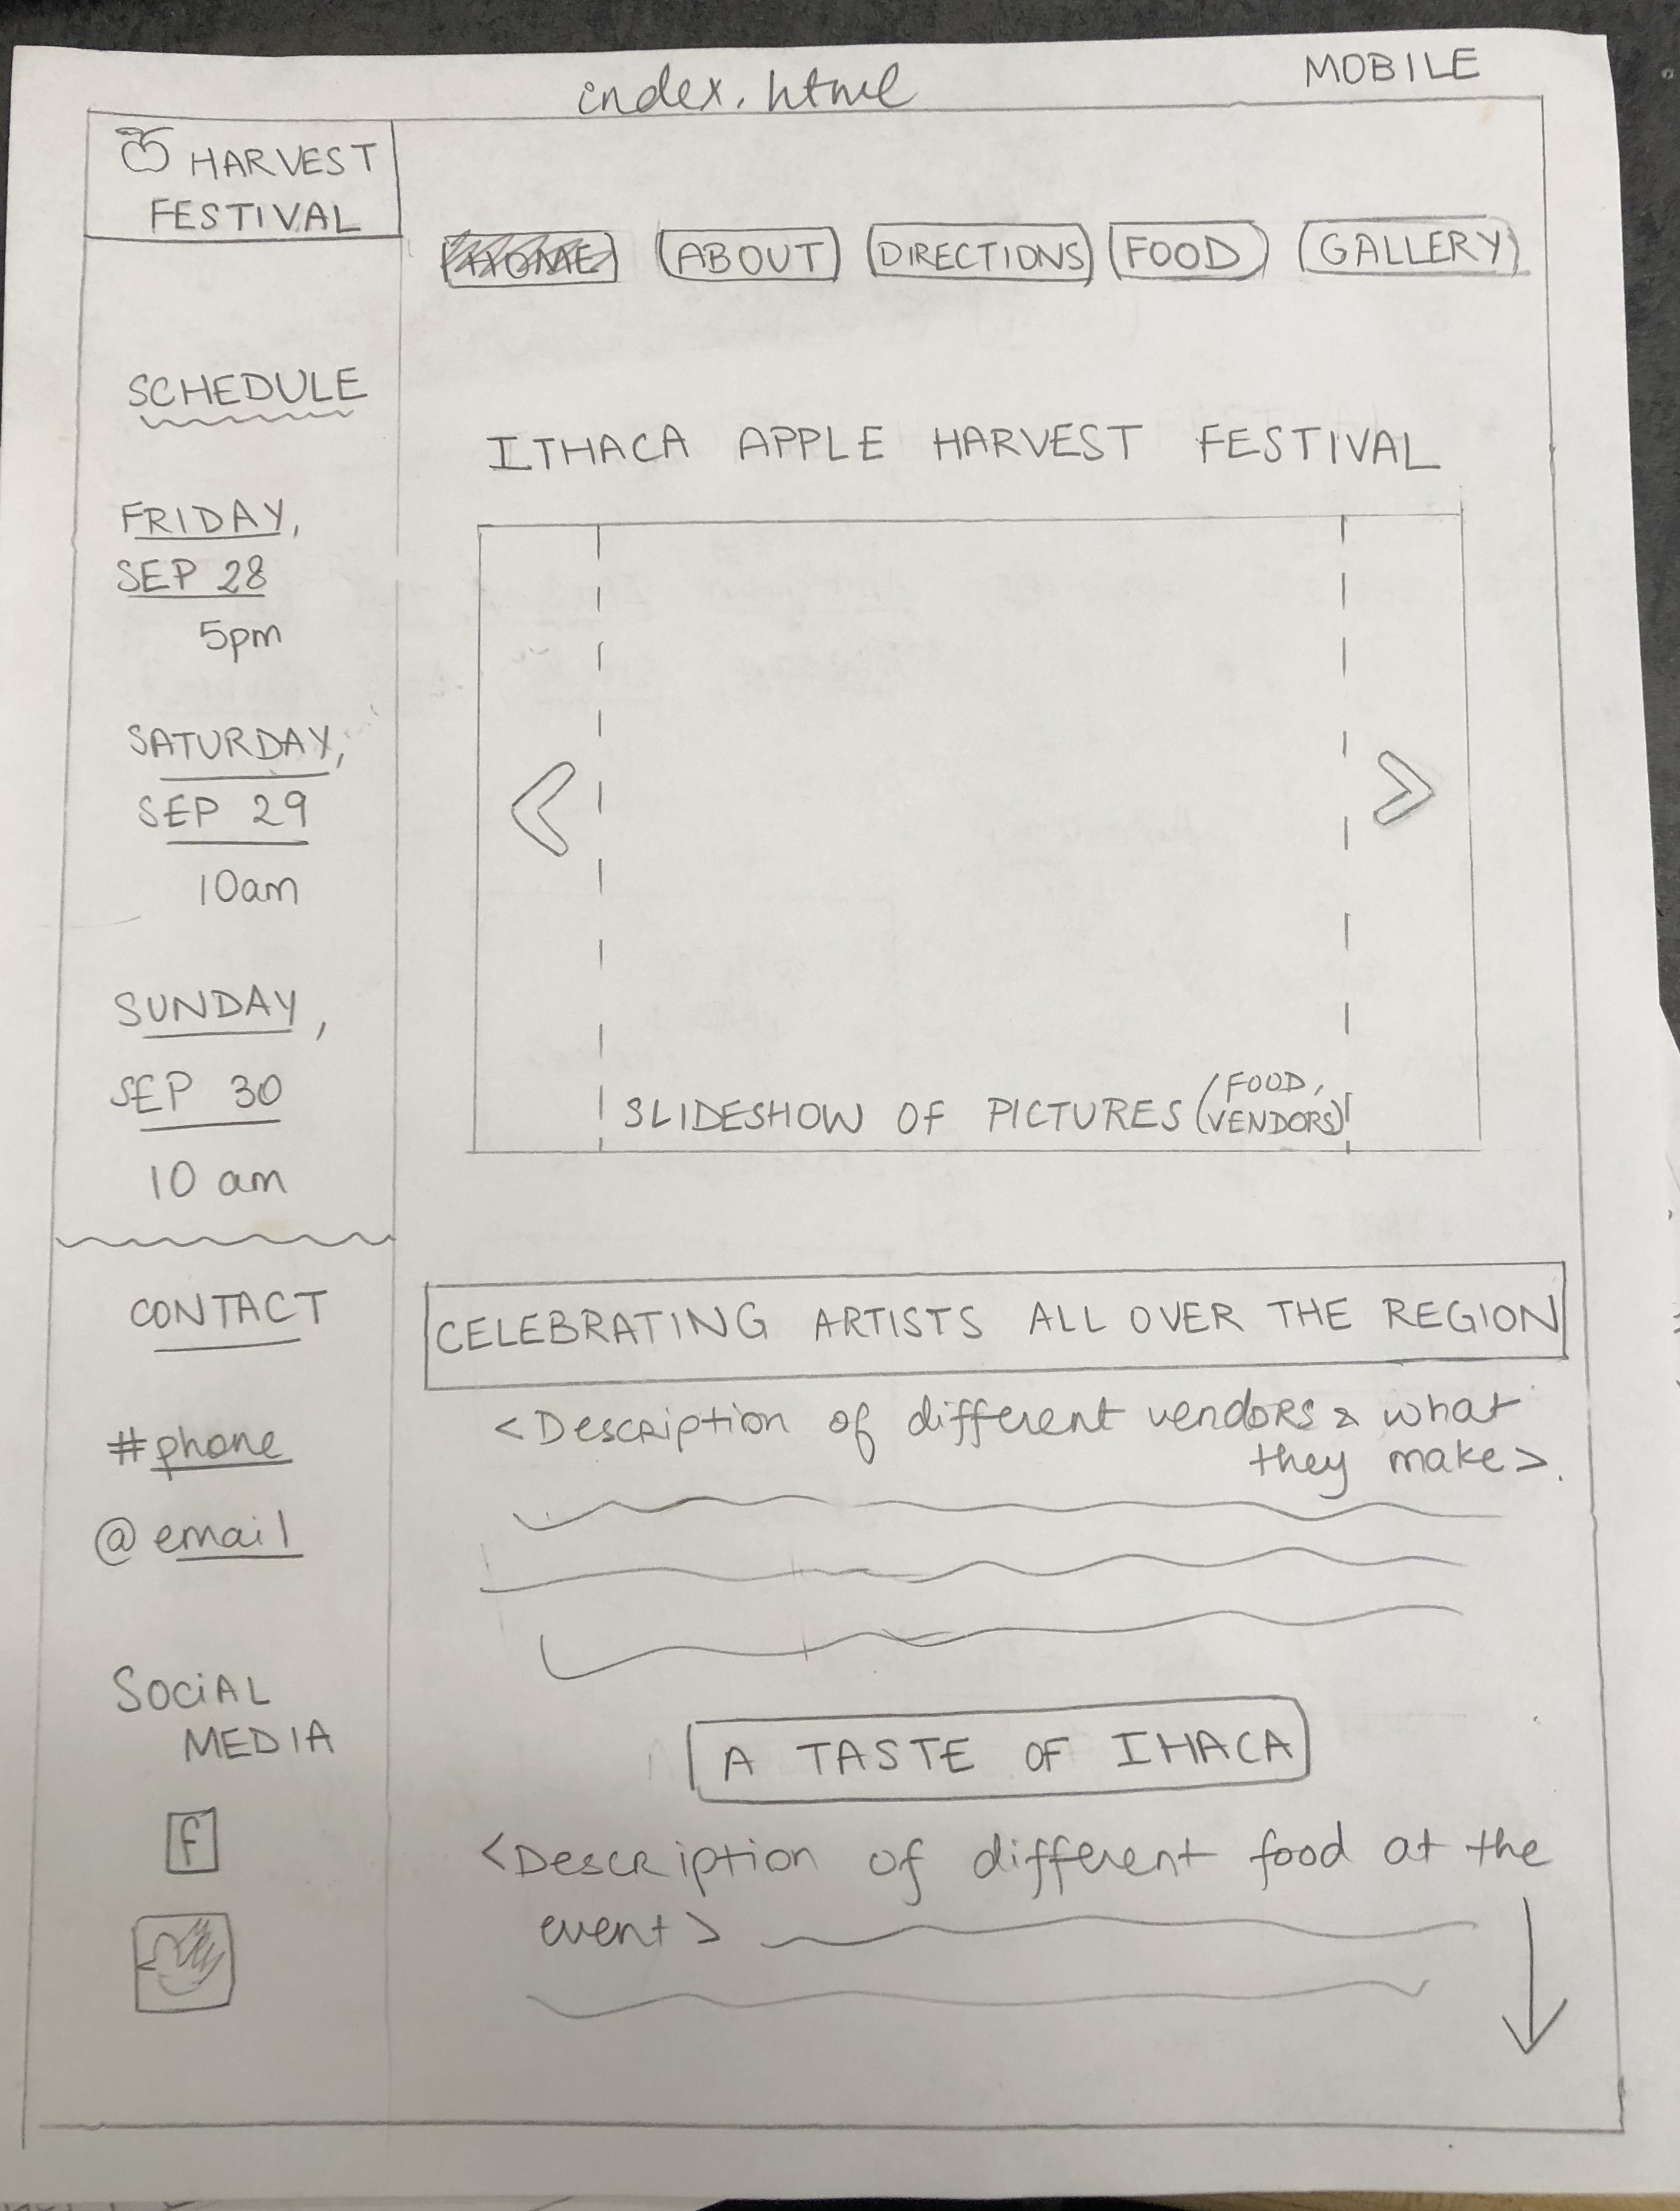 index.html
MOBILE
HARVEST
FESTIVAL
HOME
ABOUT
DIRECTIONS
FOOD
GALLERY
SCHEDULE
FRIDAY,
SEP 28
5pm
SATURDAY,
SEP 29
10am
SUNDAY,
SEP 30
10 am
CONTACT
#phone
@email
SOCIAL
MEDIA
f
ITHACA APPLE HARVEST FESTIVAL
<
>
SLIDESHOW OF PICTURES (FOOD,
VENDORS)
CELEBRATING ARTISTS ALL OVER THE REGION
<Description of different vendors & what
they make>.
A TASTE OF IHACA
<Description of different food at the
event>